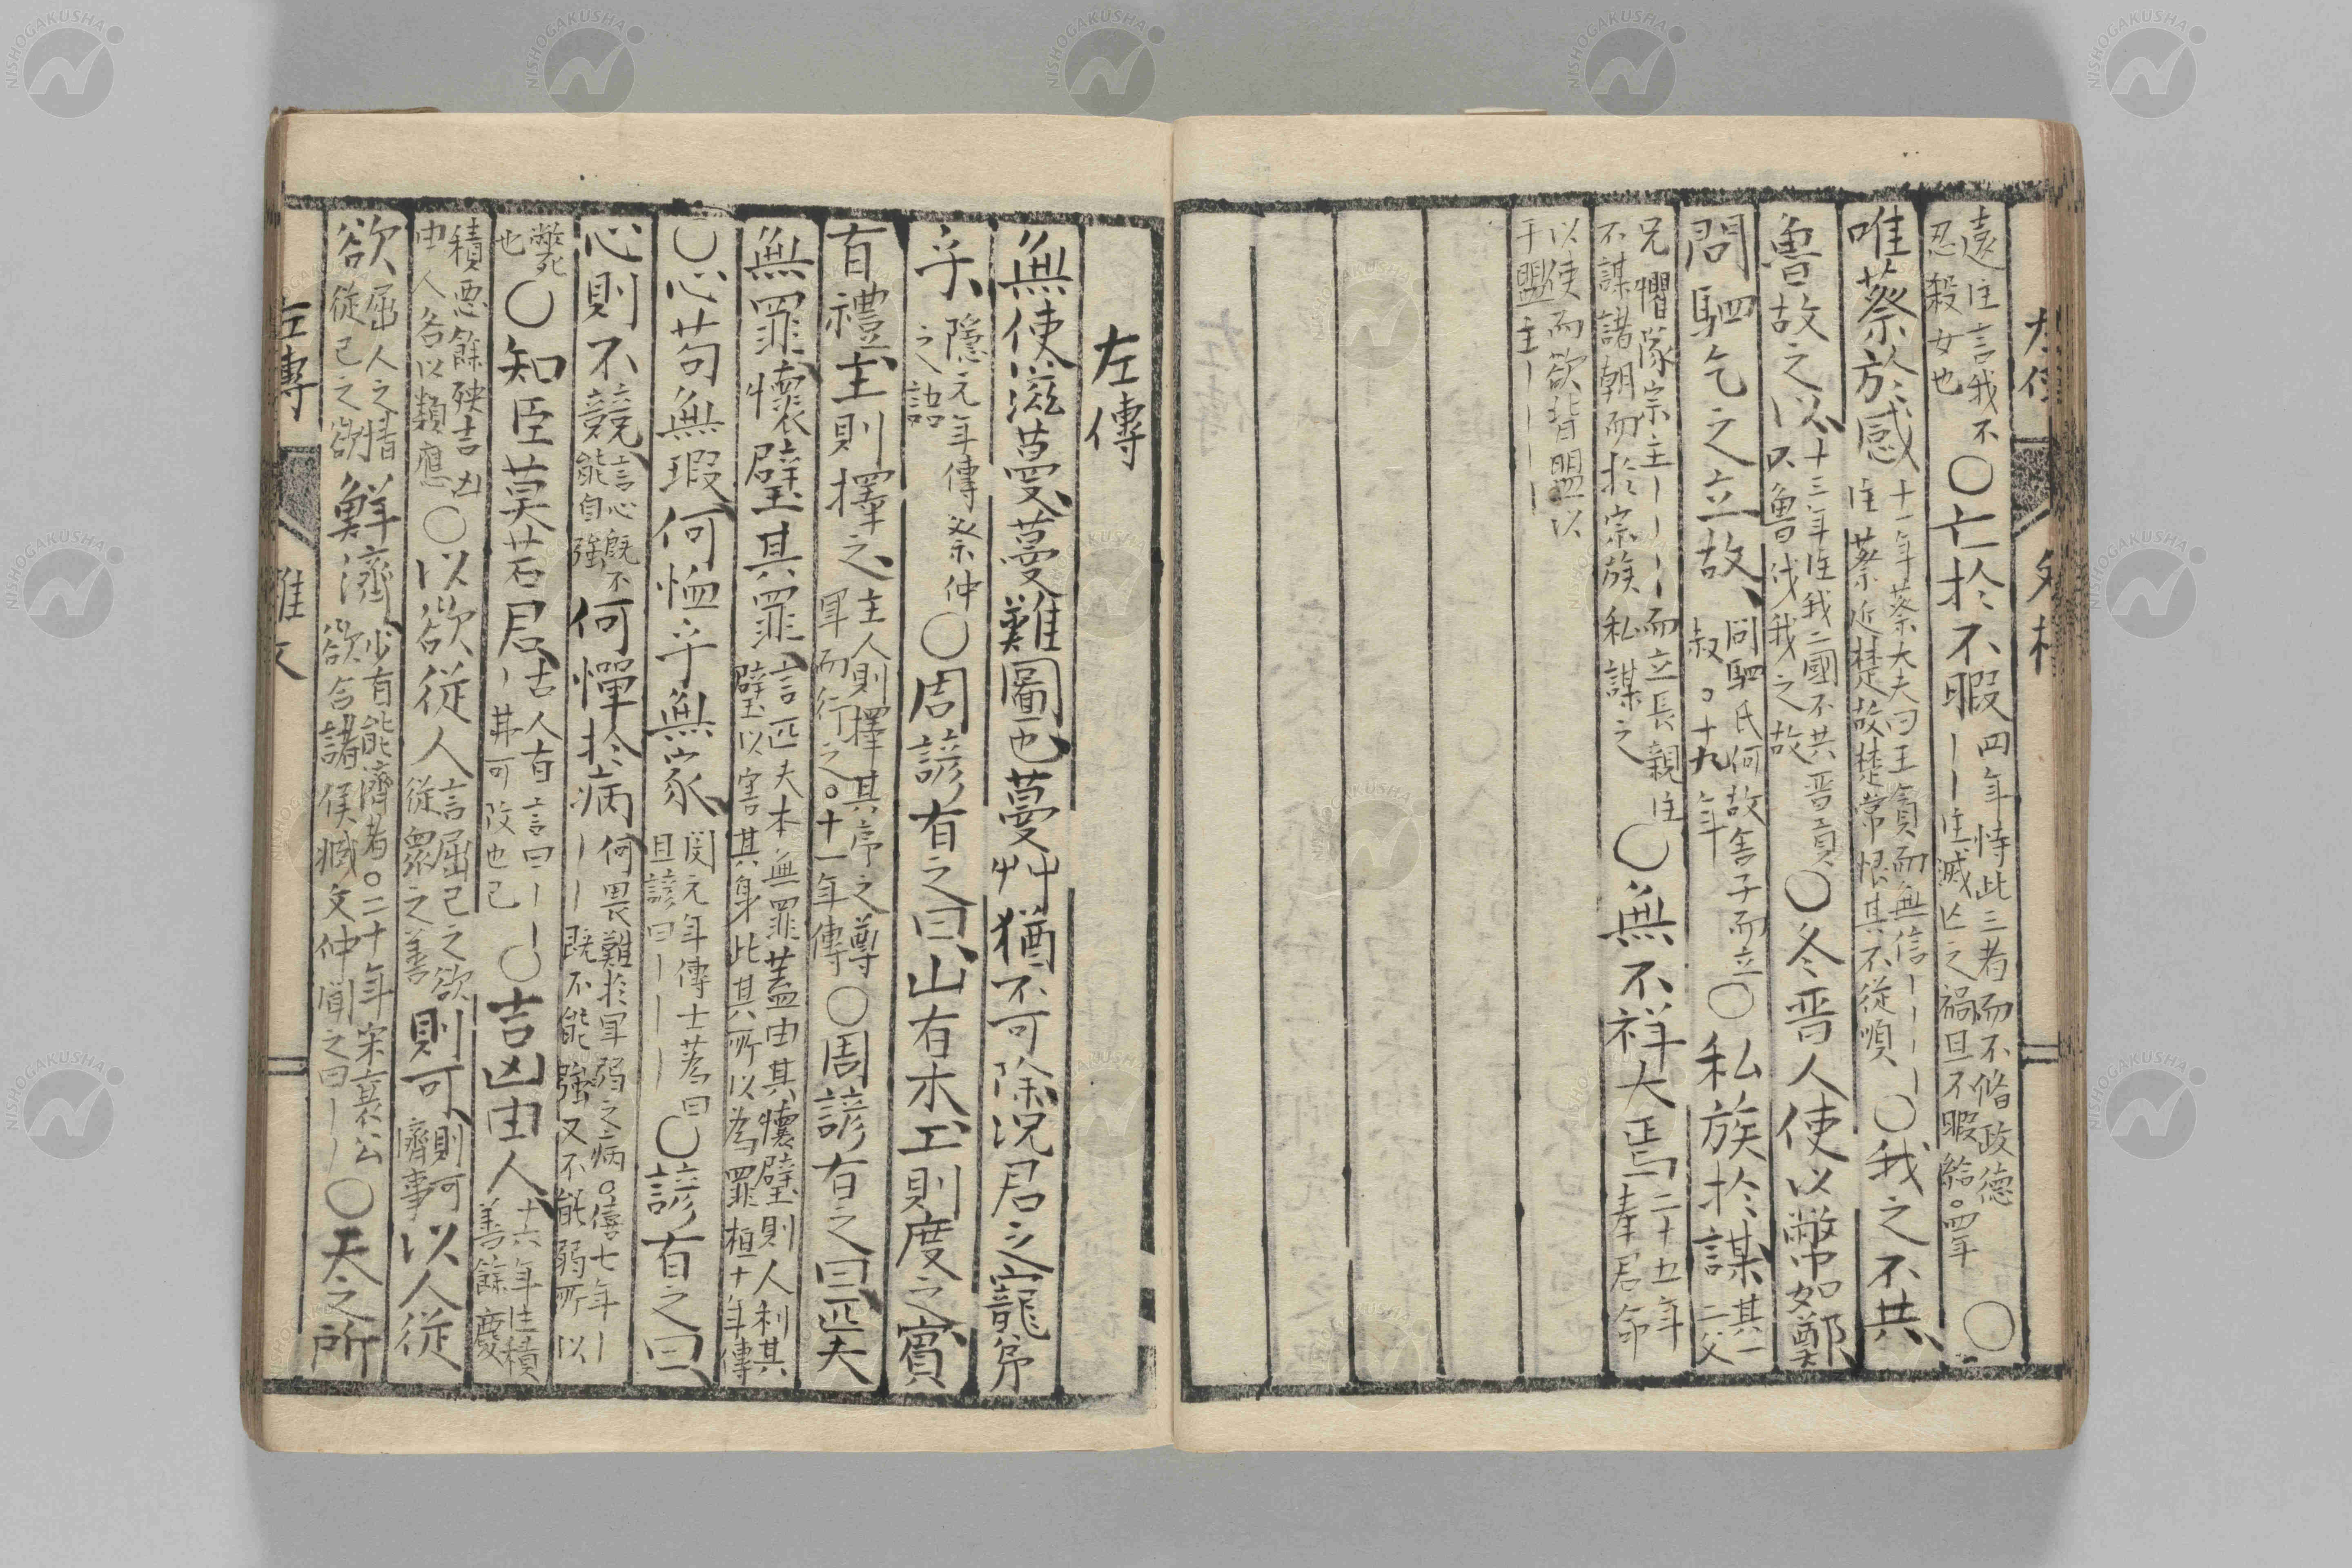 遠 注言我不
忍殺女也
○亡於不暇
四年恃此三者而不脩政德
丨丨注滅亾之禍且不暇給。四年
○
唯蔡於感
十一年蔡大夫曰王貪而無信丨丨丨丨
注蔡近楚故楚常恨其不從順
○我之不共
魯故之以
十三年注我二國不共晋貢
以魯伐我之故
○冬晋人使以幣如鄭
問駟乞之立故
同駟氏何故舍子而立
叔。十九年
○私族於謀
其一二父
兄懼隊宗主丨丨丨丨而立長親注
不謀諸朝而於宗族私謀之
○無不祥大焉
二十五年
奉君命
以使而欲背盟以
干盟主丨丨丨丨丨
左傳
無使滋蔓蔓難圖也蔓艸猶不可除況君之寵弟
乎
隱元年傳祭仲
之語
○周諺有之曰山有木工則度之賓
有禮主則擇之
主人則擇其序之尊
卑而行之。十一年傳
○周諺有之曰匹夫
無罪懷璧其罪
言匹夫本無罪蓋由其懷璧則人利其
璧以害其身此其所以為罪 桓十年傳
○心苟無瑕何恤乎無家
閔元年傳士蒍曰
且諺曰丨丨丨丨
○諺有之曰
心則不競
言心既不
能自強
何憚於病
何畏難於卑弱之病。僖七年丨
丨丨丨既不能強又不能弱所以
斃
也
○知臣莫若君
古人有言曰丨丨
丨丨弗可改也已
○吉凶由人
十六年注積
善餘慶
積惡餘殃吉凶
由人各以類應
○以欲從人
言屈己之欲
從衆之善
則可
則可
濟事
以人從
欲
屈人之情
從己之欲
鮮濟
少有能濟者。二十年宋襄公
欲合諸侯臧文仲聞之曰丨丨丨
○天之所
左傳
雜文